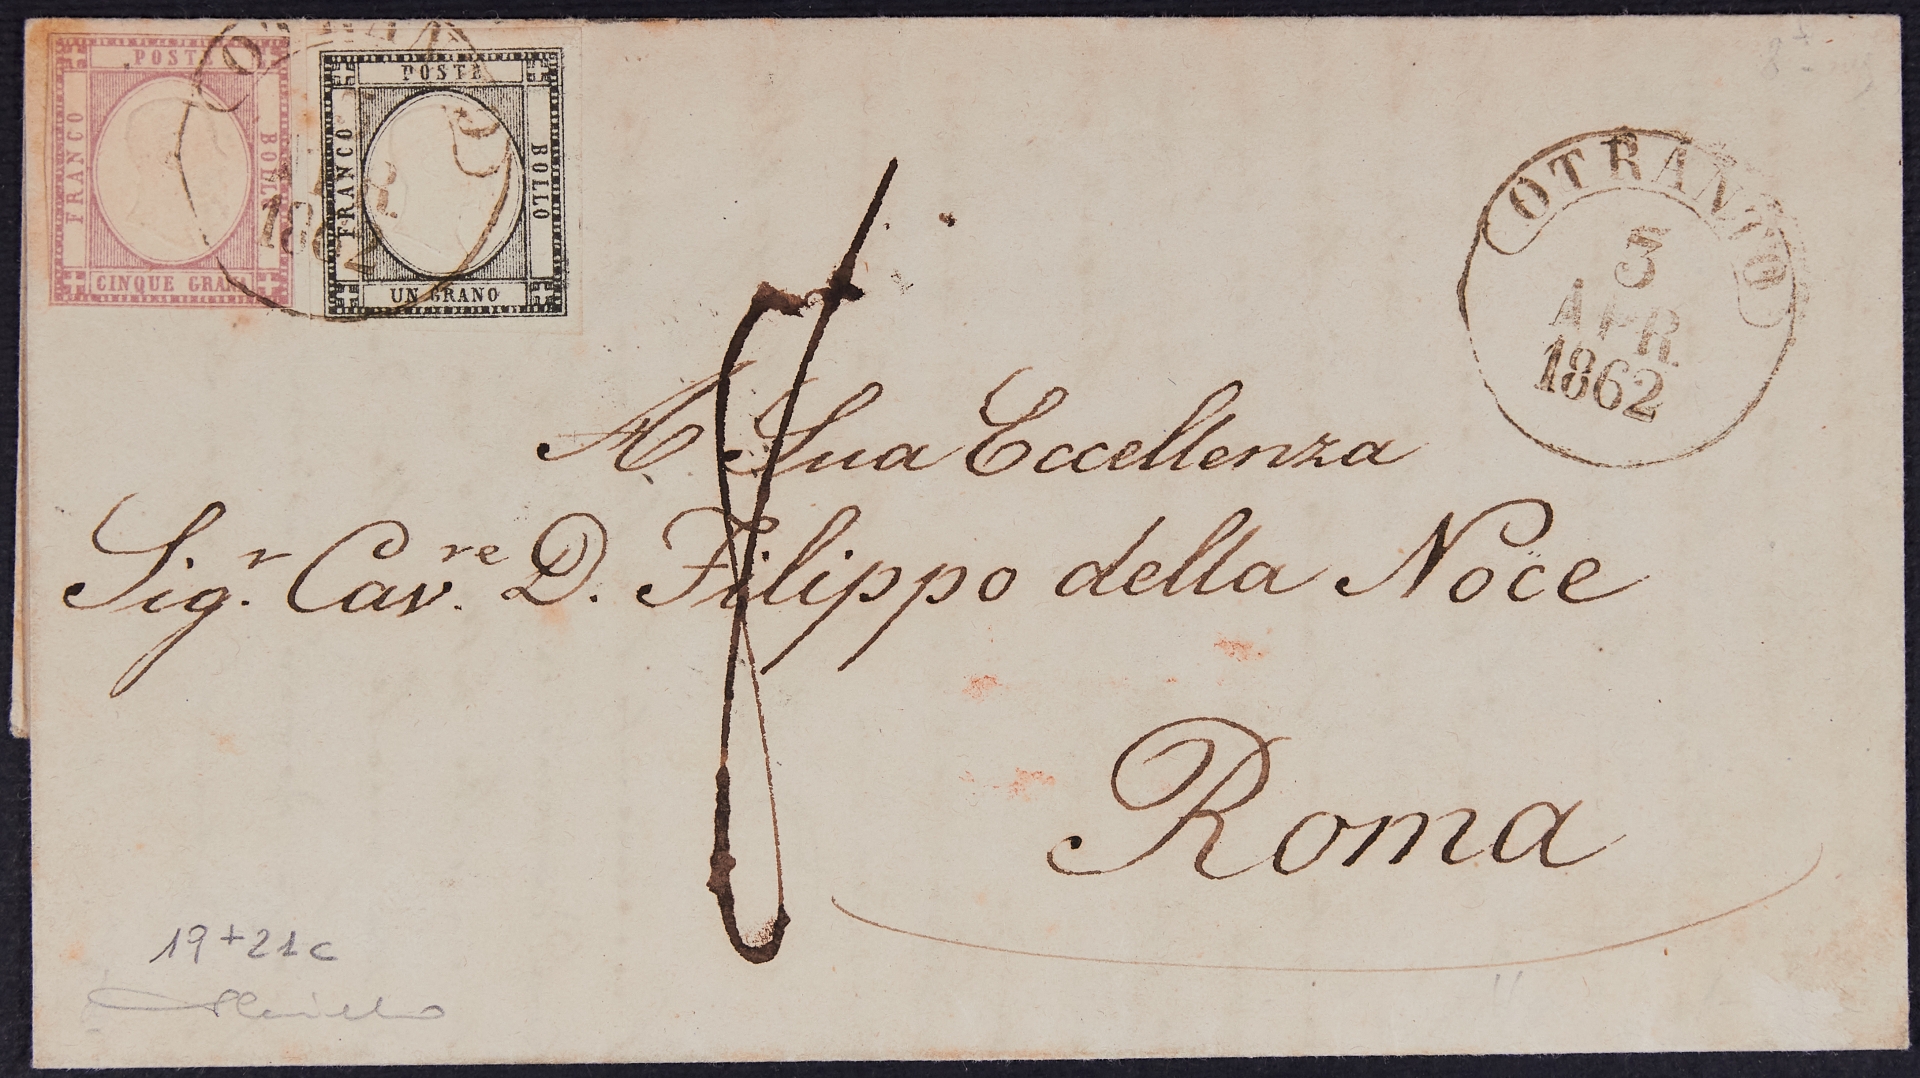 POSTE
FRANCO
BOLLO
CINQUE GRANA
POSTE
FRANCO
BOLLO
UN GRANO
APR
1862
OTRANTO
3
APR.
1862
8
A Sua Eccellenza
Sig.r Cav.re D. Filippo della Noce
Roma
19+21c